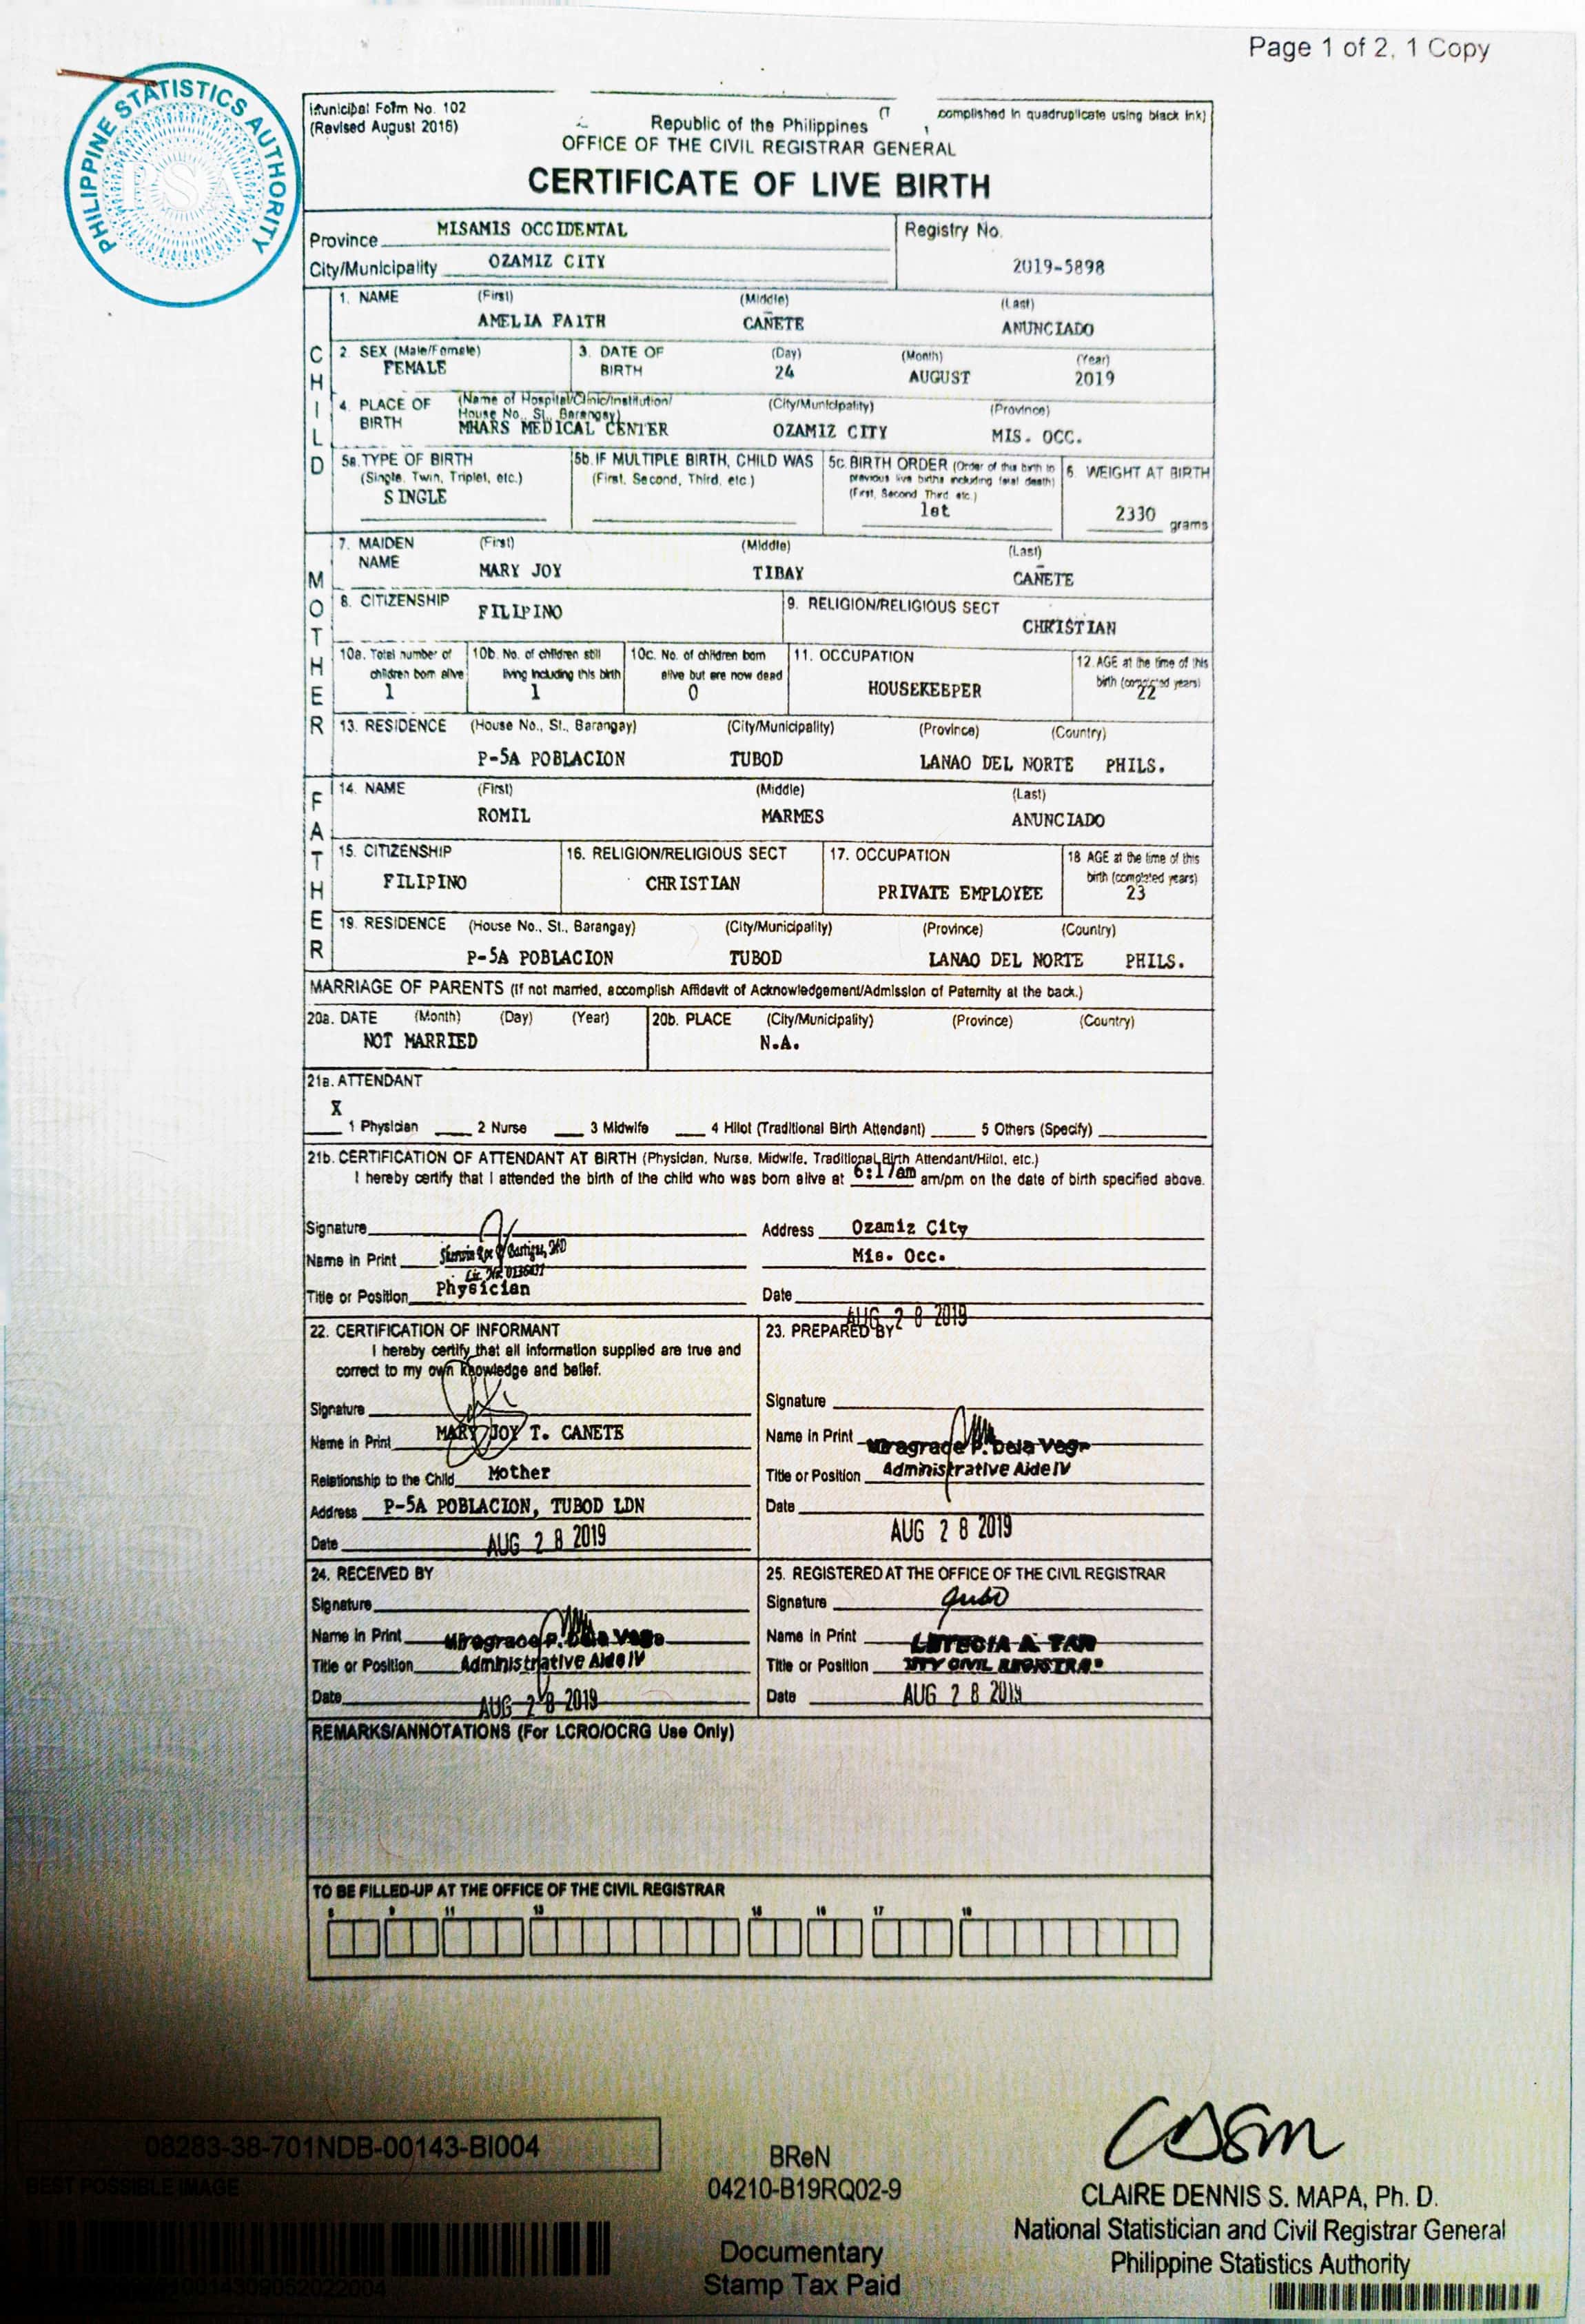 Page 1 of 2, 1 Copy
PHILIPPINE STATISTICS AUTHORITY
PSA
Municipal Form No. 102
(Revised August 2016)
complished in quadruplicate using black ink)
Republic of the Philippines
OFFICE OF THE CIVIL REGISTRAR GENERAL
CERTIFICATE OF LIVE BIRTH
Province MISAMIS OCCIDENTAL
Registry No.
City/Municipality OZAMIZ CITY
2019-5898
CHILD
1. NAME (First) (Middle) (Last)
AMELIA FAITH CAÑETE ANUNCIADO
2. SEX (Male/Female) 3. DATE OF BIRTH (Day) (Month) (Year)
FEMALE 24 AUGUST 2019
4. PLACE OF BIRTH (Name of Hospital/Clinic/Institution/ House No., St., Barangay) (City/Municipality) (Province)
MHARS MEDICAL CENTER OZAMIZ CITY MIS. OCC.
5a. TYPE OF BIRTH (Single, Twin, Triplet, etc.)
SINGLE
5b. IF MULTIPLE BIRTH, CHILD WAS (First, Second, Third, etc.)
5c. BIRTH ORDER (Order of this birth to previous live births including fetal death) (First, Second, Third, etc.)
1st
6. WEIGHT AT BIRTH
2330 grams
MOTHER
7. MAIDEN NAME (First) (Middle) (Last)
MARY JOY TIBAY CAÑETE
8. CITIZENSHIP FILIPINO
9. RELIGION/RELIGIOUS SECT CHRISTIAN
10a. Total number of children born alive
1
10b. No. of children still living including this birth
1
10c. No. of children born alive but are now dead
0
11. OCCUPATION
HOUSEKEEPER
12. AGE at the time of this birth (completed years)
22
13. RESIDENCE (House No., St., Barangay) (City/Municipality) (Province) (Country)
P-5A POBLACION TUBOD LANAO DEL NORTE PHILS.
FATHER
14. NAME (First) (Middle) (Last)
ROMIL MARMES ANUNCIADO
15. CITIZENSHIP
FILIPINO
16. RELIGION/RELIGIOUS SECT
CHRISTIAN
17. OCCUPATION
PRIVATE EMPLOYEE
18 AGE at the time of this birth (completed years)
23
19. RESIDENCE (House No., St., Barangay) (City/Municipality) (Province) (Country)
P-5A POBLACION TUBOD LANAO DEL NORTE PHILS.
MARRIAGE OF PARENTS (If not married, accomplish Affidavit of Acknowledgement/Admission of Paternity at the back.)
20a. DATE (Month) (Day) (Year) 20b. PLACE (City/Municipality) (Province) (Country)
NOT MARRIED N.A.
21a. ATTENDANT
X
1 Physician 2 Nurse 3 Midwife 4 Hilot (Traditional Birth Attendant) 5 Others (Specify)
21b. CERTIFICATION OF ATTENDANT AT BIRTH (Physician, Nurse, Midwife, Traditional Birth Attendant/Hilot, etc.)
I hereby certify that I attended the birth of the child who was born alive at 6:17am am/pm on the date of birth specified above.
Signature
Address Ozamiz City
Name in Print
Mis. Occ.
Title or Position Physician
Date AUG 28 2019
22. CERTIFICATION OF INFORMANT
I hereby certify that all information supplied are true and
correct to my own knowledge and belief.
Signature
Name in Print MARY JOY T. CANETE
Relationship to the Child Mother
Address P-5A POBLACION, TUBOD LDN
Date AUG 28 2019
23. PREPARED BY
Signature
Name in Print Miragrace P. Dela Vega
Title or Position Administrative Aide IV
Date
AUG 28 2019
24. RECEIVED BY
Signature
Name in Print Miragrace P. Dela Vega
Title or Position Administrative Aide IV
Date AUG 28 2019
25. REGISTERED AT THE OFFICE OF THE CIVIL REGISTRAR
Signature
Name in Print LETECIA A. TAN
Title or Position CITY CIVIL REGISTRAR
Date AUG 28 2019
REMARKS/ANNOTATIONS (For LCRO/OCRG Use Only)
TO BE FILLED-UP AT THE OFFICE OF THE CIVIL REGISTRAR
8 9 11 13 15 16 17 19
08283-38-701NDB-00143-BI004
BEST POSSIBLE IMAGE
BReN
04210-B19RQ02-9
Documentary
Stamp Tax Paid
CLAIRE DENNIS S. MAPA, Ph. D.
National Statistician and Civil Registrar General
Philippine Statistics Authority